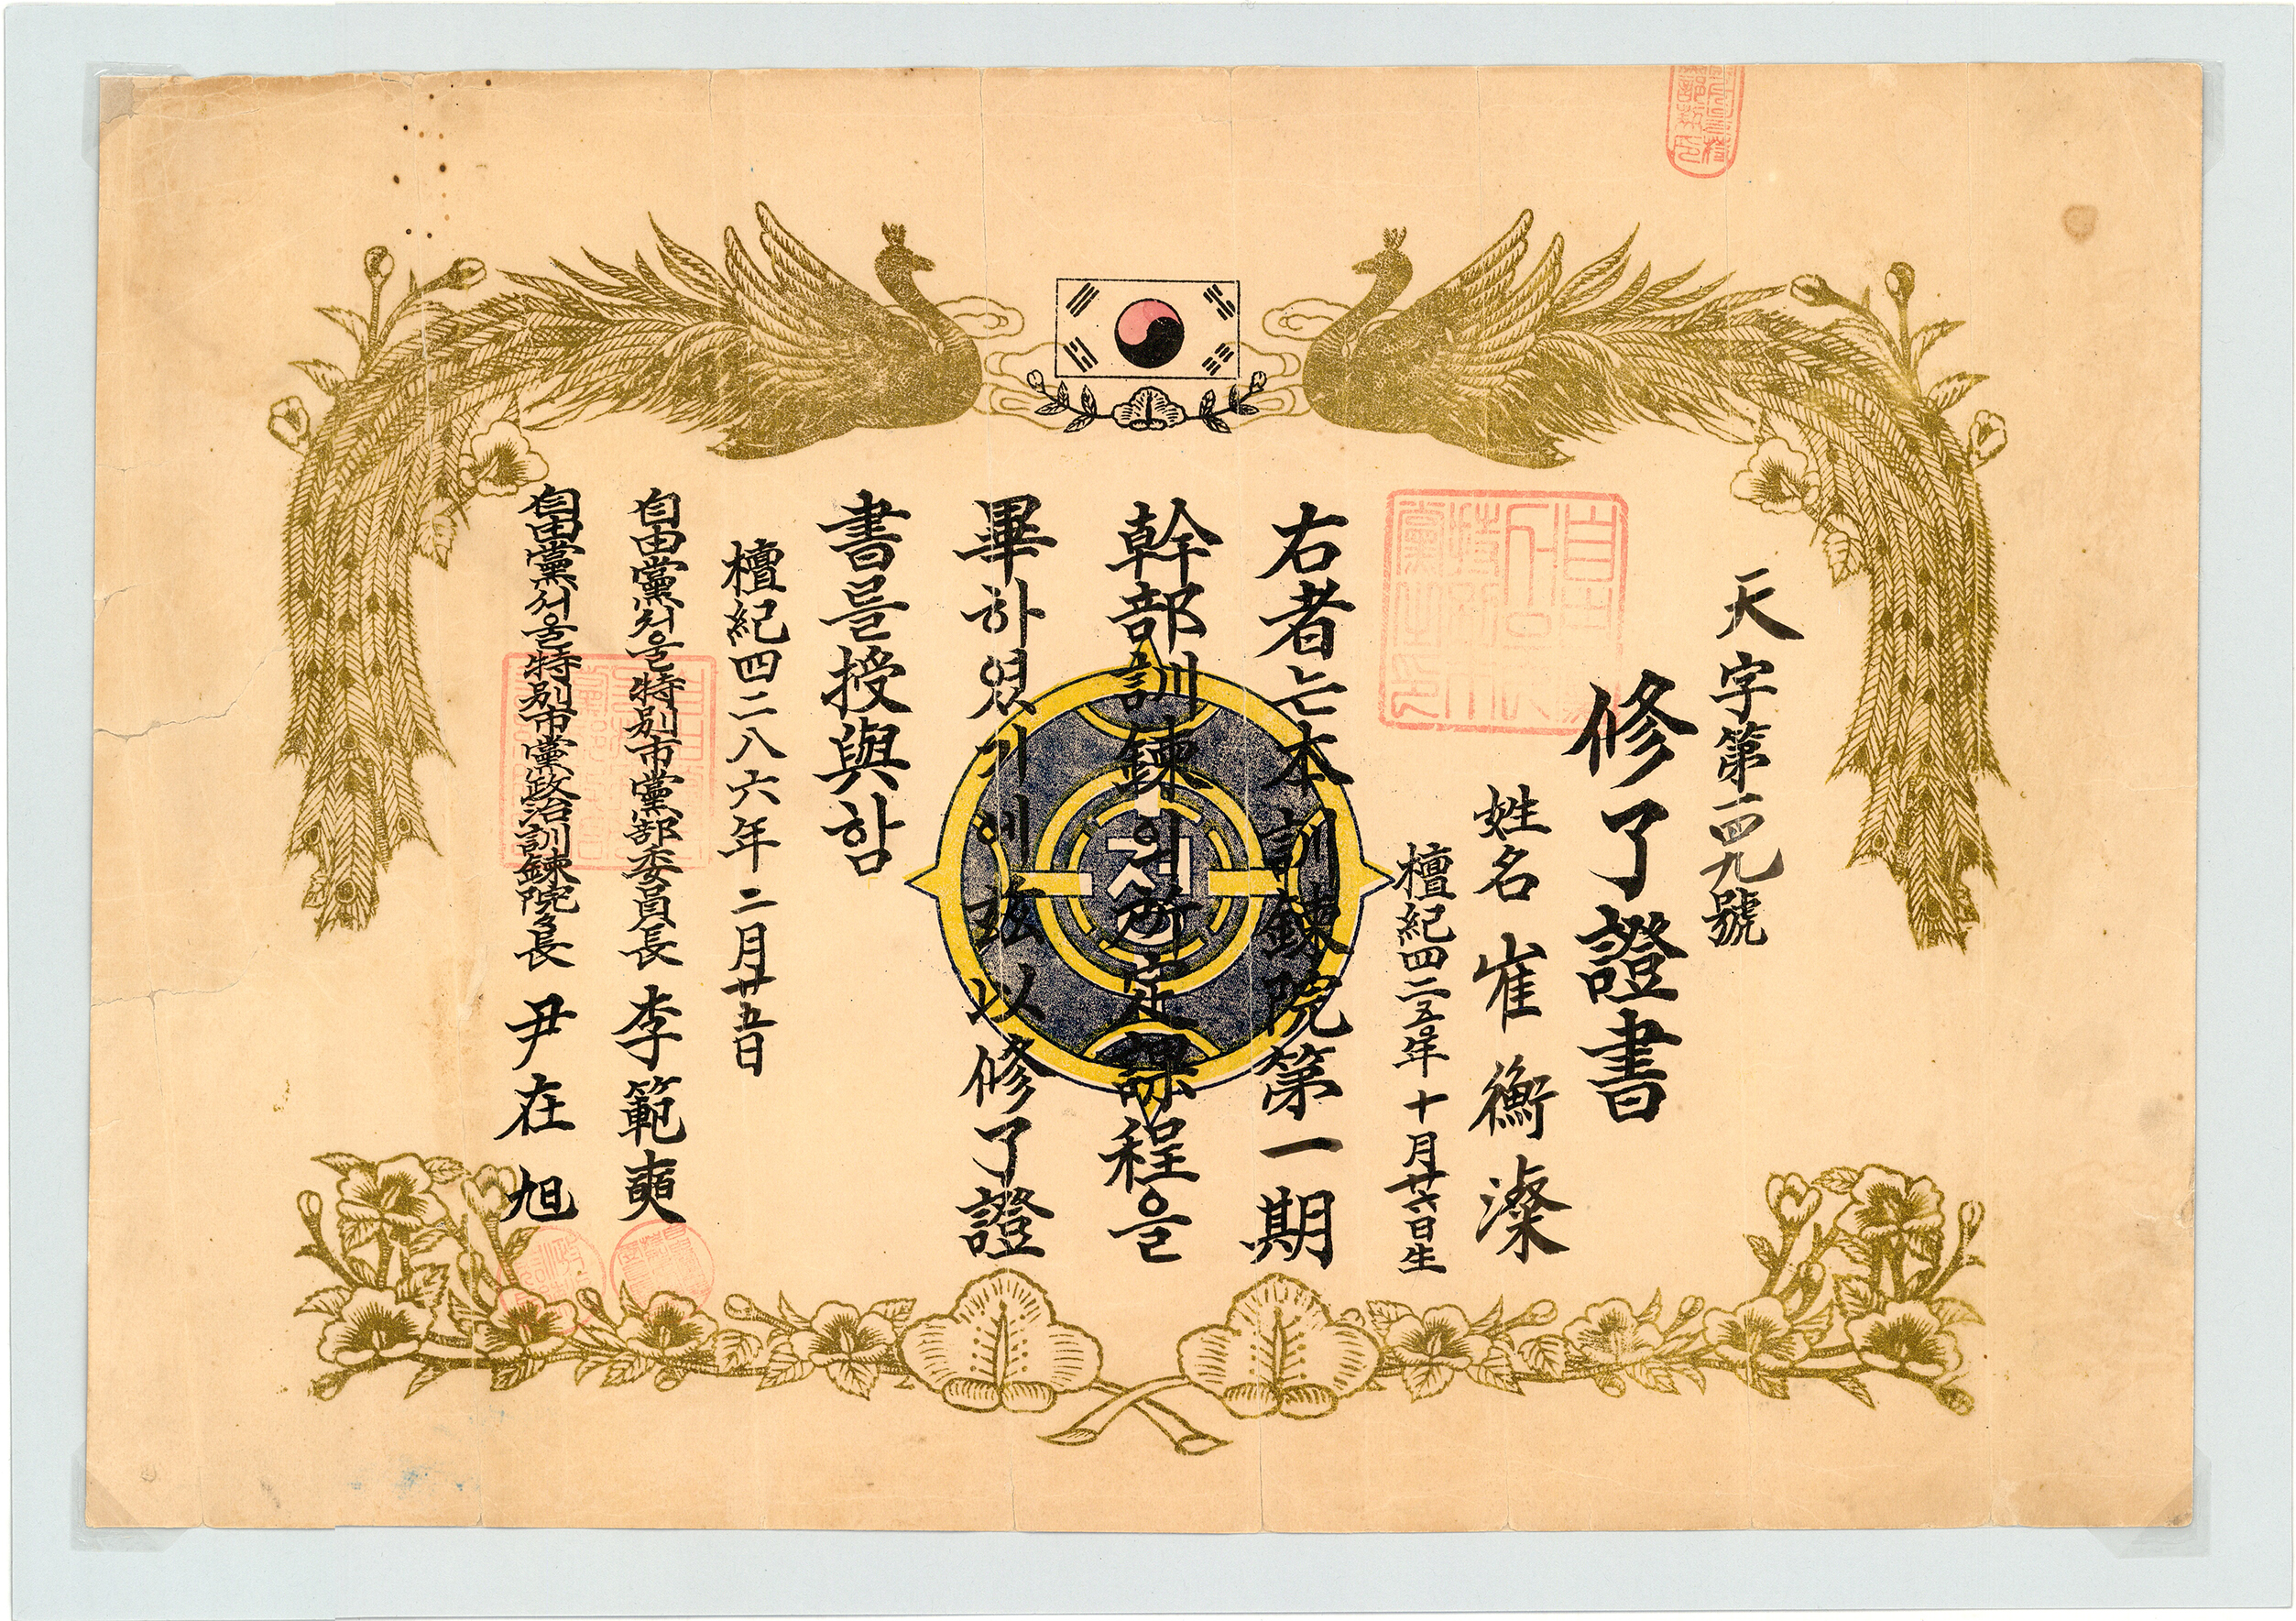 天字第一四九號
修了證書
姓名 崔衡澯
檀紀四二五〇年十月廿六日生
右者는本訓鍊院第一期
幹部訓鍊의所定課程을
畢하였기에玆以修了證
書를授與함
檀紀四二八六年二月廿五日
自由黨서울特別市黨部委員長 李範奭
自由黨서울特別市黨政治訓鍊院長 尹在旭